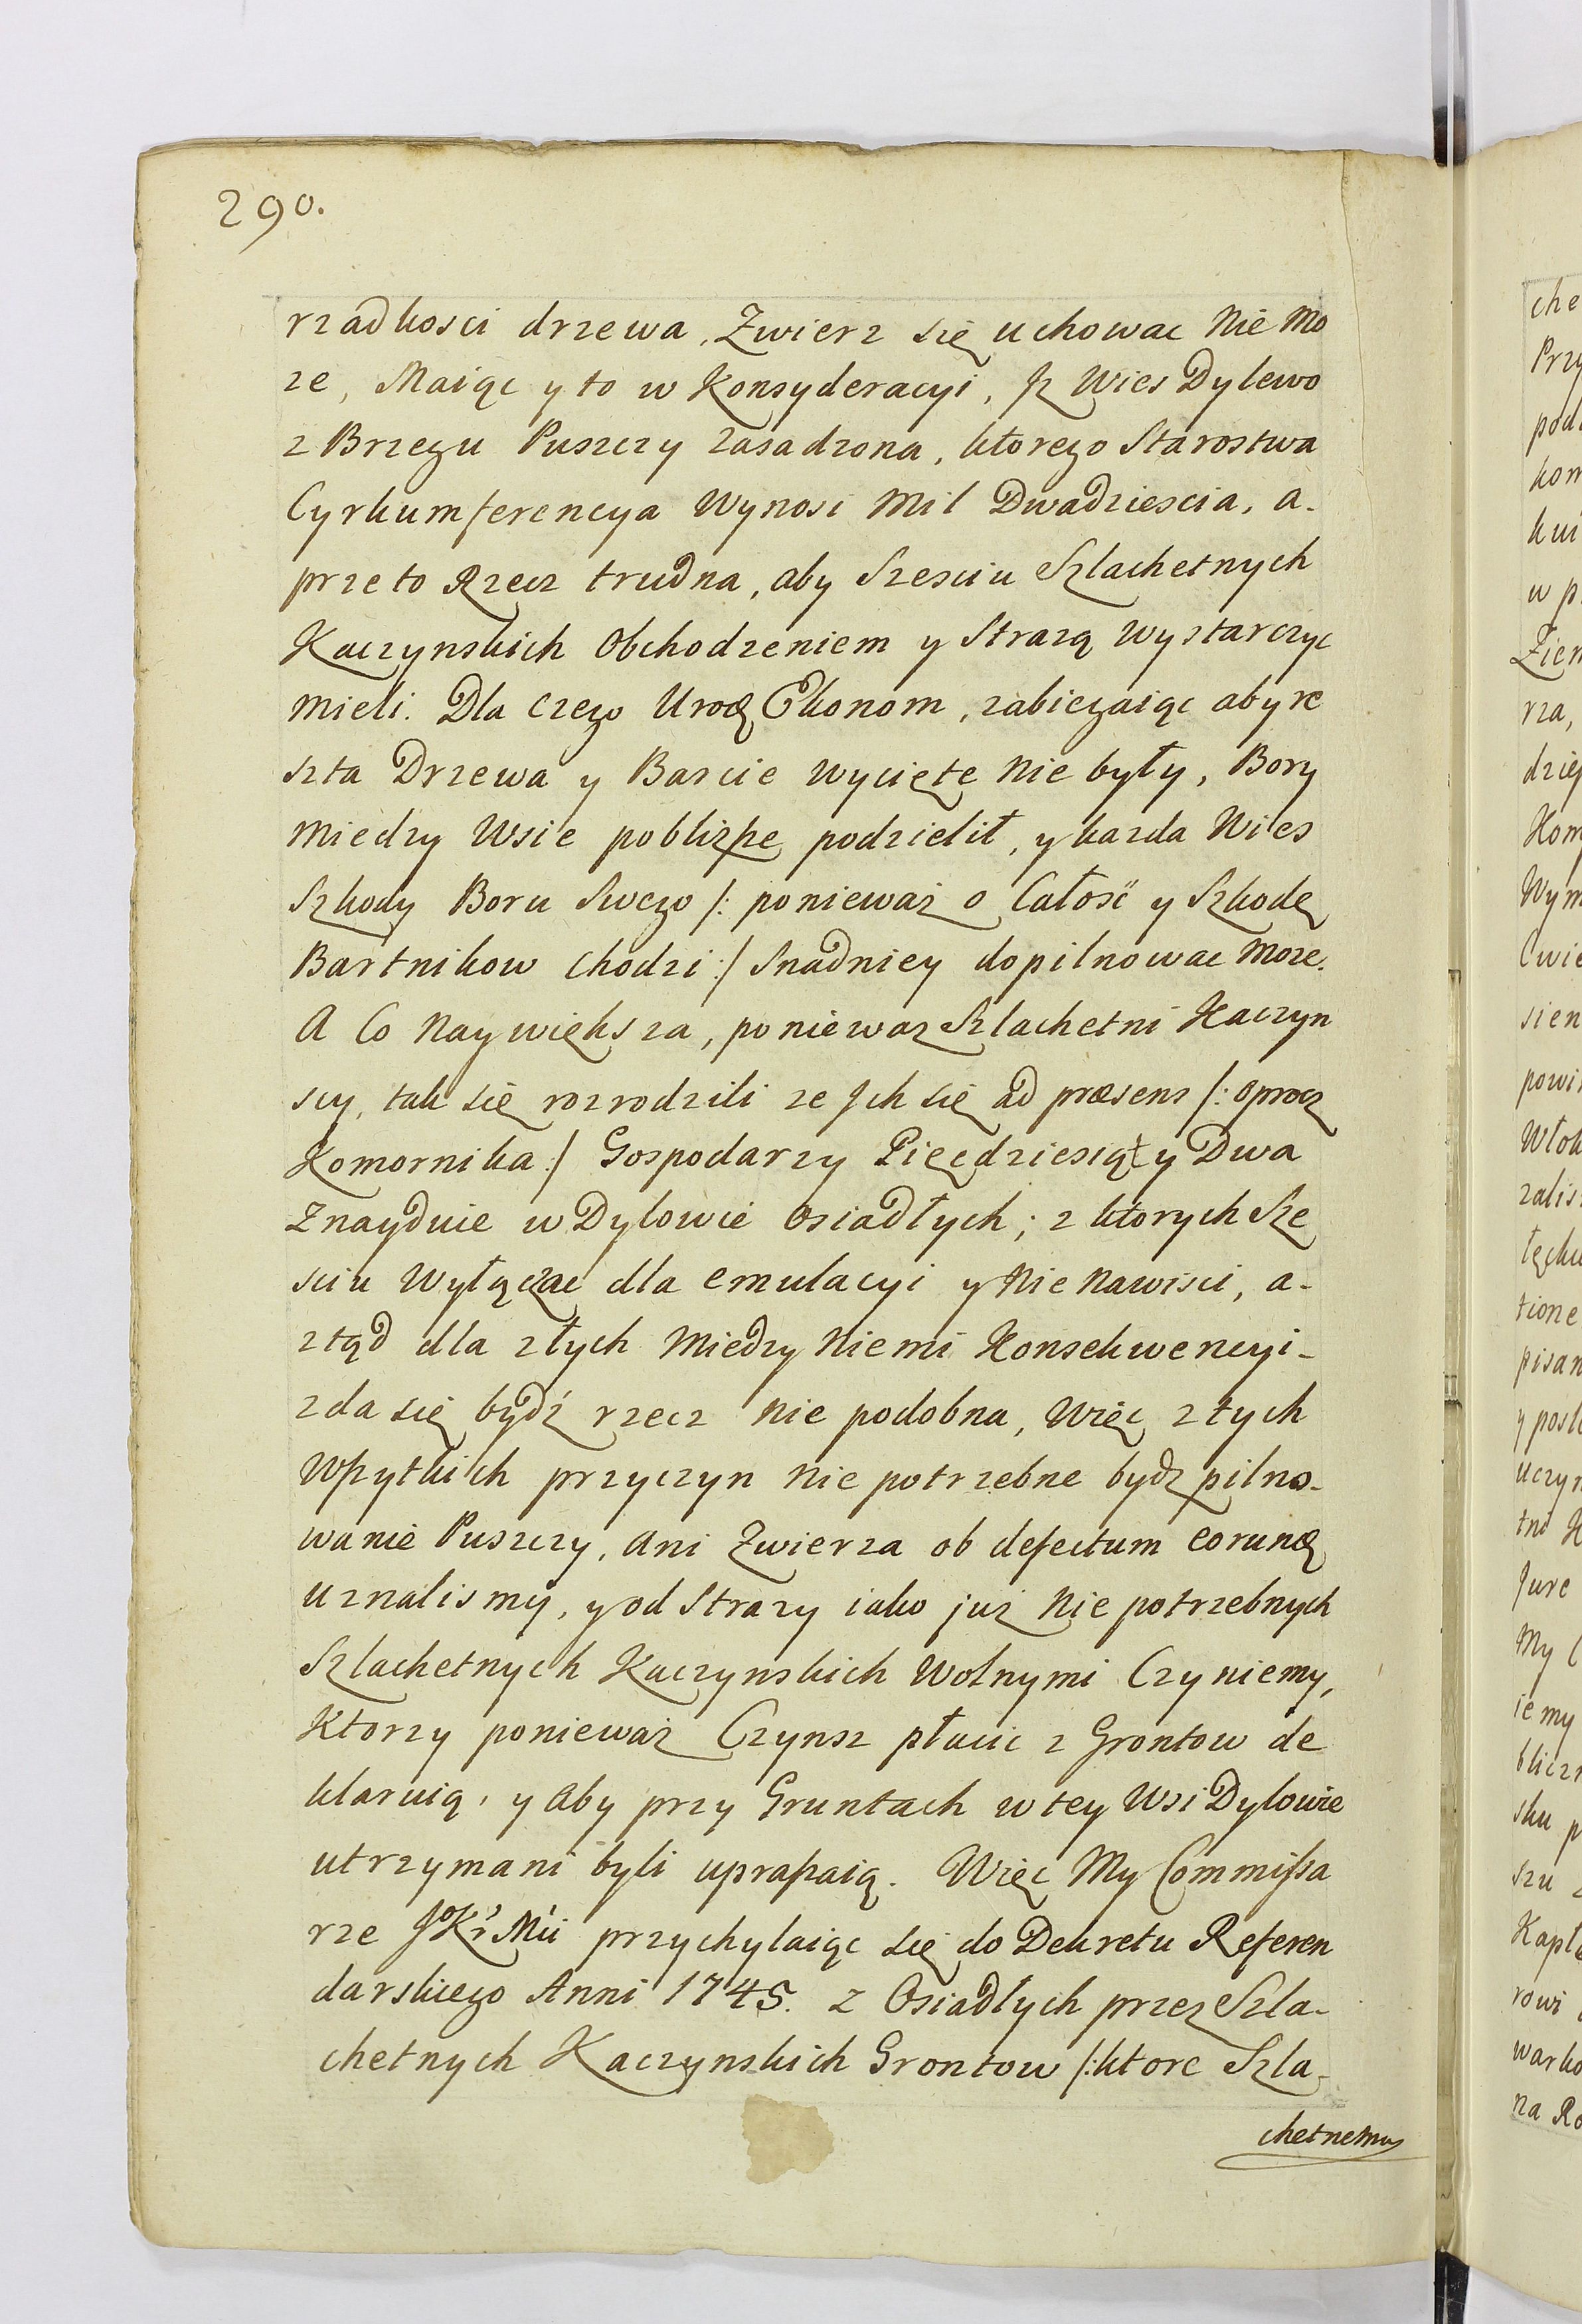 290.
rzadkosci drzewa, Zwierz się uchowac Nie Mo
ze, Maiąc y to w Konsyderacyi, Jz Wies Dylewo
z Brzegu Puszczy zasadzona, ktorego Starostwa
Cyrkumferencya Wynosi Mil Dwadziescia, a-
przeto Rzecz trudna, aby Szesciu Szlachetnych
Kaczynskich Obchodzeniem y Strazą Wystarczyc
Mieli. Dla Czego Urodz Ekonom, zabiegaiąc aby re
szta Drzewa y Barcie Wycięte Nie były, Bory
Miedzy Wsie pobliższe podzielił, y kazda Wies
Szkody Boru Swego /: ponieważ o Całość y Szkodę
Bartnikow Chodzi :/ Snadniey dopilnowac Moze.
A Co Naywiększa, poniewaz Szlachetni Kaczyn
scy, tak się rozrodzili ze Jch się ad præsens /: oprocz
Komornika :/ Gospodarzy Pięcdziesiąt y Dwa
Znayduie w Dylowie Osiadłych; z ktorych Sze
sciu Wyłączac dla emulacyi y Nie Nawisci, a-
ztąd dla złych Miedzy Niemi Konsekwencyi-
zda się bydź rzecz Nie podobna, Więc z tych
Wszytkich przyczyn Nie potrzebne bydz pilno-
wanie Puszczy, Ani Zwierza ob defectum eorundẽ
Uznalismy, y od Strazy iako już Nie potrzebnych
Szlachetnych Kaczynskich Wolnymi Czyniemy,
Ktorzy ponieważ Czynsz płacic z Grontow de
klaruią, y Aby przy Gruntach w tey Wsi Dylowie
utrzymani byli upraszaią. Więc My Commissa
rze JoKr Mći przychylaiąc się do Dekretu Referen
darskiego Anni 1745. z Osiadłych przez Szla-
chetnych Kaczynskich Grontow /: ktore Szla-
chetnemu
che
Prz
pod
kom
kui
w p
Zien
rza,
dzię
Kom
Wym
Cwie
sien
powi
Włok
zalis
łęcku
tione
pisan
y posł
Uczyn
tno K
Jure
My C
iemy
blicz
sku p
szu
Kapł
rowi
warko
na Ro